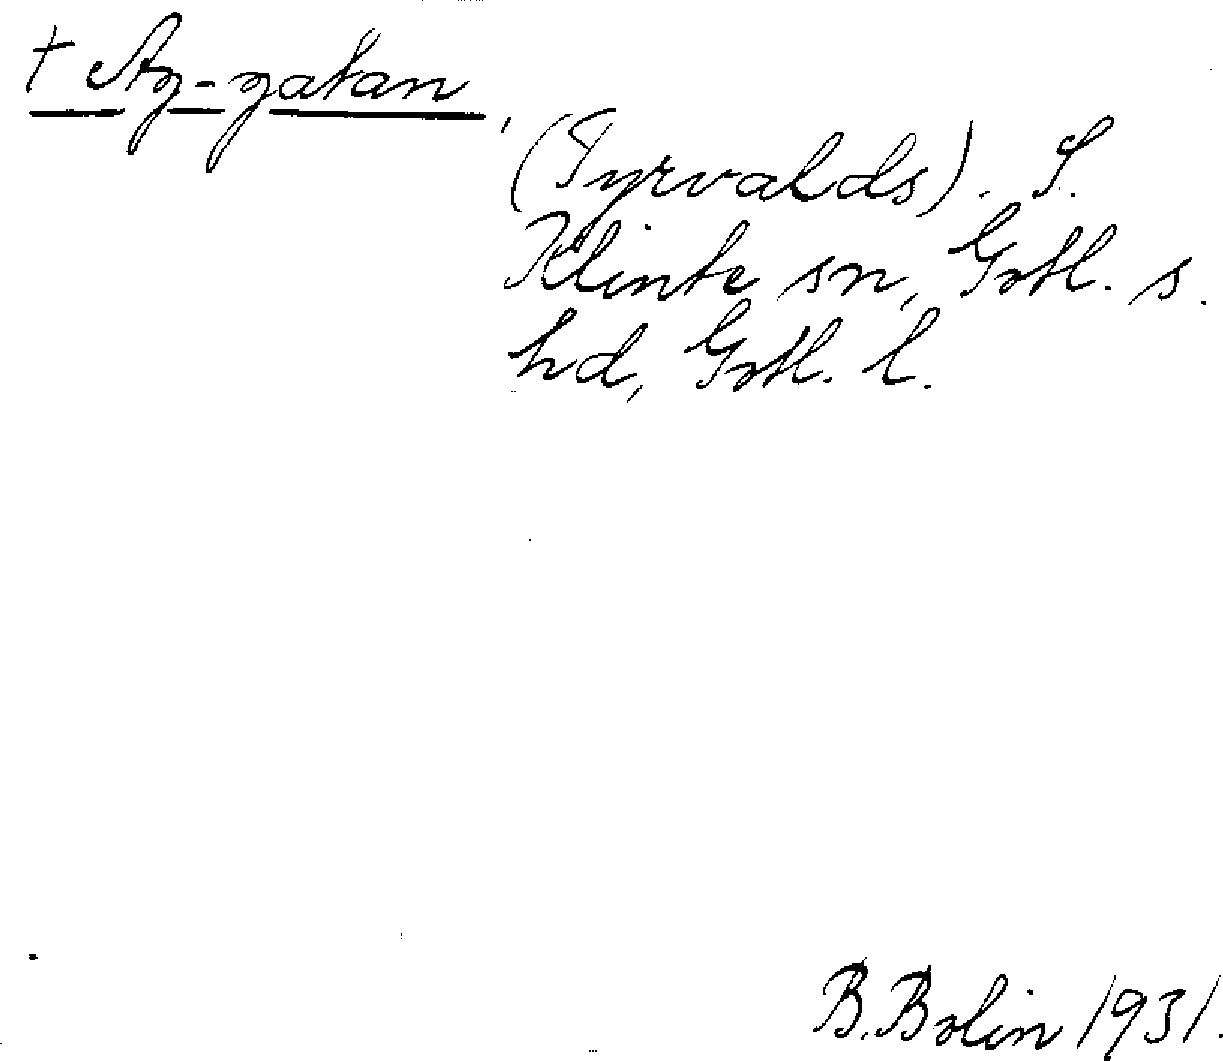 † Ag-gatan,
(Tyrvalds). S.
Klinte sn, Gotl. s.
hd, Gotl. l.
B. Bolin 1931.